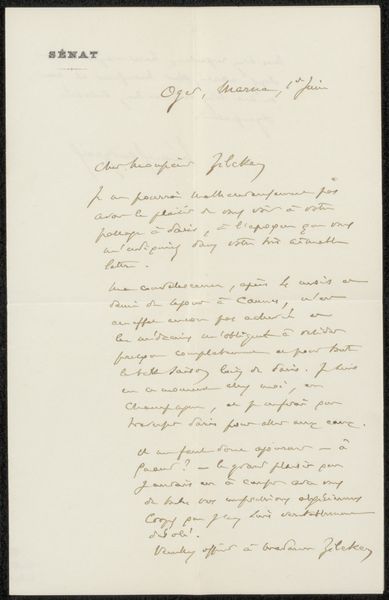 SÉNAT
Oger, Marne, 1er Juin
Cher Monsieur Zilcken
Je ne pourrai malheureusement pas
avoir le plaisir de vous voir à votre
passage à Paris, à l'époque que vous
m'indiquiez dans votre très aimable
lettre.
Ma convalescence, après 4 mois et
demi de séjour à Cannes, n'est
en effet encore pas achevée et
les médecins m'obligent à résider
presque complètement et pour toute
la belle saison loin de Paris. Je suis
en ce moment chez moi, en
Champagne, et je
traverser Paris pour aller aux eaux.
Il me faut donc ajourner — à
quand ? — le grand plaisir que
j'aurais eu à causer avec vous
de toutes vos impressions algériennes
Croyez que j'en suis véritablement
désolé.
Veuillez offrir à Madame Zilcken